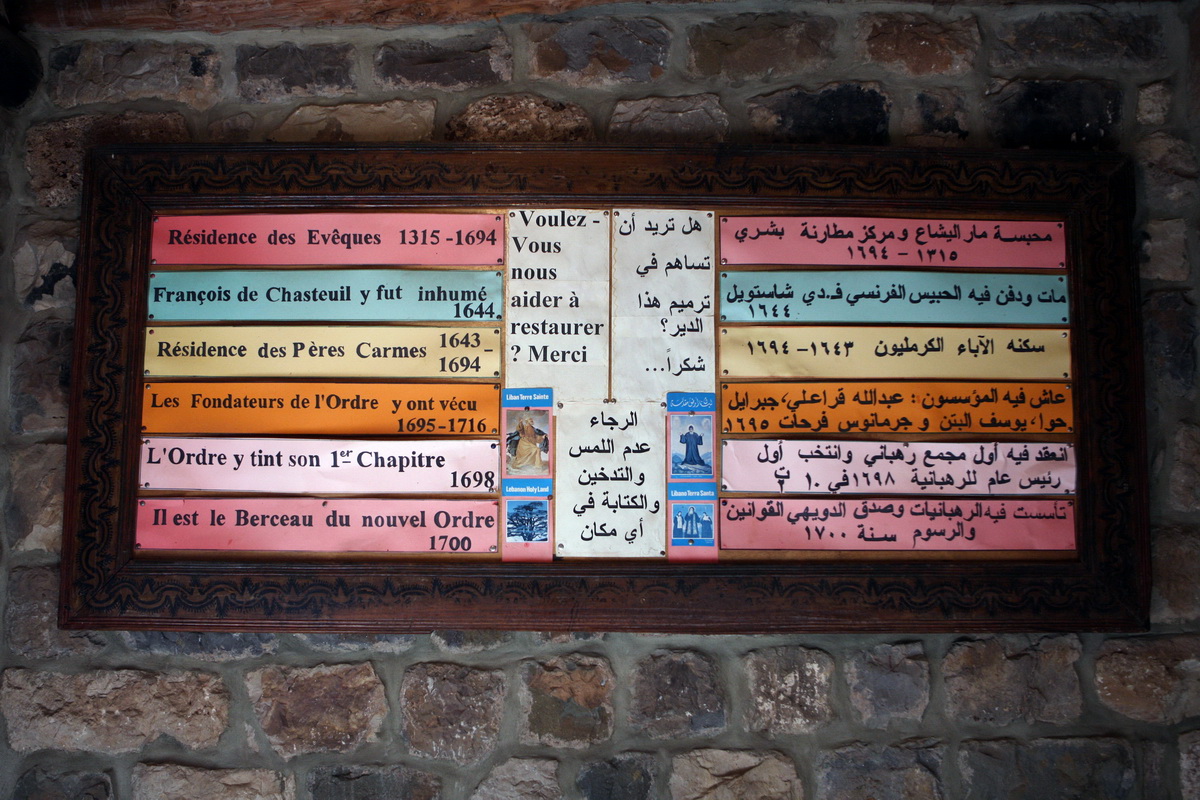 Résidence des Evêques 1315 -1694
François de Chasteuil y fut inhumé
1644
Résidence des Pères Carmes 1643 -
1694
Les Fondateurs de l'Ordre y ont vécu
1695-1716
L'Ordre y tint son 1er Chapitre
1698
Il est le Berceau du nouvel Ordre
1700
Voulez -
Vous
nous
aider à
restaurer
? Merci
هل تريد أن
تساهم في
ترميم هذا
الدير؟
شكراً...
Liban Terre Sainte
Lebanon Holy Land
الرجاء
عدم اللمس
والتدخين
والكتابة في
أي مكان
Libano Terra Santa
محبسة مار اليشاع ومركز مطارنة بشري
١٣١٥ - ١٦٩٤
مات ودفن فيه الحبيس الفرنسي ف.دي شاستويل
١٦٤٤
سكنه الآباء الكرمليون ١٦٤٣-١٦٩٤
عاش فيه المؤسسون : عبدالله قراعلي، جبرايل
حوا، يوسف البتن و جرمانوس فرحات ١٦٩٥
انعقد فيه أول مجمع رهباني وانتخب أول
رئيس عام للرهبانية ١٦٩٨في ١٠ ت
تأسست فيه الرهبانيات وصدق الدويهي القوانين
والرسوم سنة ١٧٠٠